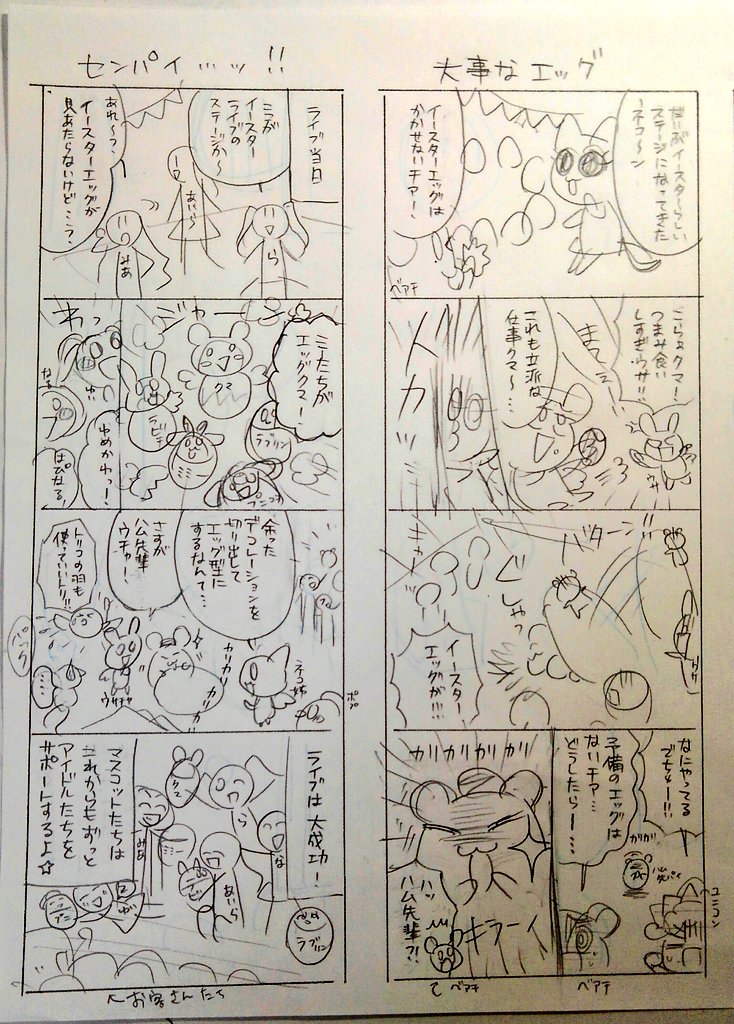 大事なエッグ
だいぶイースターらしい
ステージになってきた
ネコ〜ン
イースターエッグは
かかせないチァー!
ベアチ
こらぁクマ!
つまみ食い
しすぎウサ!!
まてェー
これも立派な
仕事クマ〜…
ウサ
バターン!!
ぐしゃっ
キャー
イースター
エッグが!!!
なにやってる
でちゅー!!!
予備のエッグは
ないチァ…
どうしたらー…
ガリガリ
ハム先パイ
ユニコン
ベアチ
カリカリカリカリ
キラーイ
ハッ
ハム先輩?!
ベアチ
センパイ…ッ!!
ライブ当日
ここが
イースター
ライブの
ステージか〜
あれ〜?
イースターエッグが
見あたらないけど…?
あいら
みあ
ら
ジャーン
ミーたちが
エッグクマー!
わっ
クマ
ラビチ
ラブリン
ゆい
なる
ゆめかわっー!
はぴなる♪
余った
デコレーションを
切り出して
エッグ型に
するなんて…
さすが
公先輩
ウチャー!
トリコの羽も
使っていいトリ!!
カリカリ
カリカリ
ネコ姉
ウサチャ
ポプ
ライブは大成功!
マスコットたちは
これからもずっと
アイドルたちを
サポートするよ☆
クマ
ら
みあ
な
あいら
ラビ
ゆい
プニ
ラブリン
お客さんたち